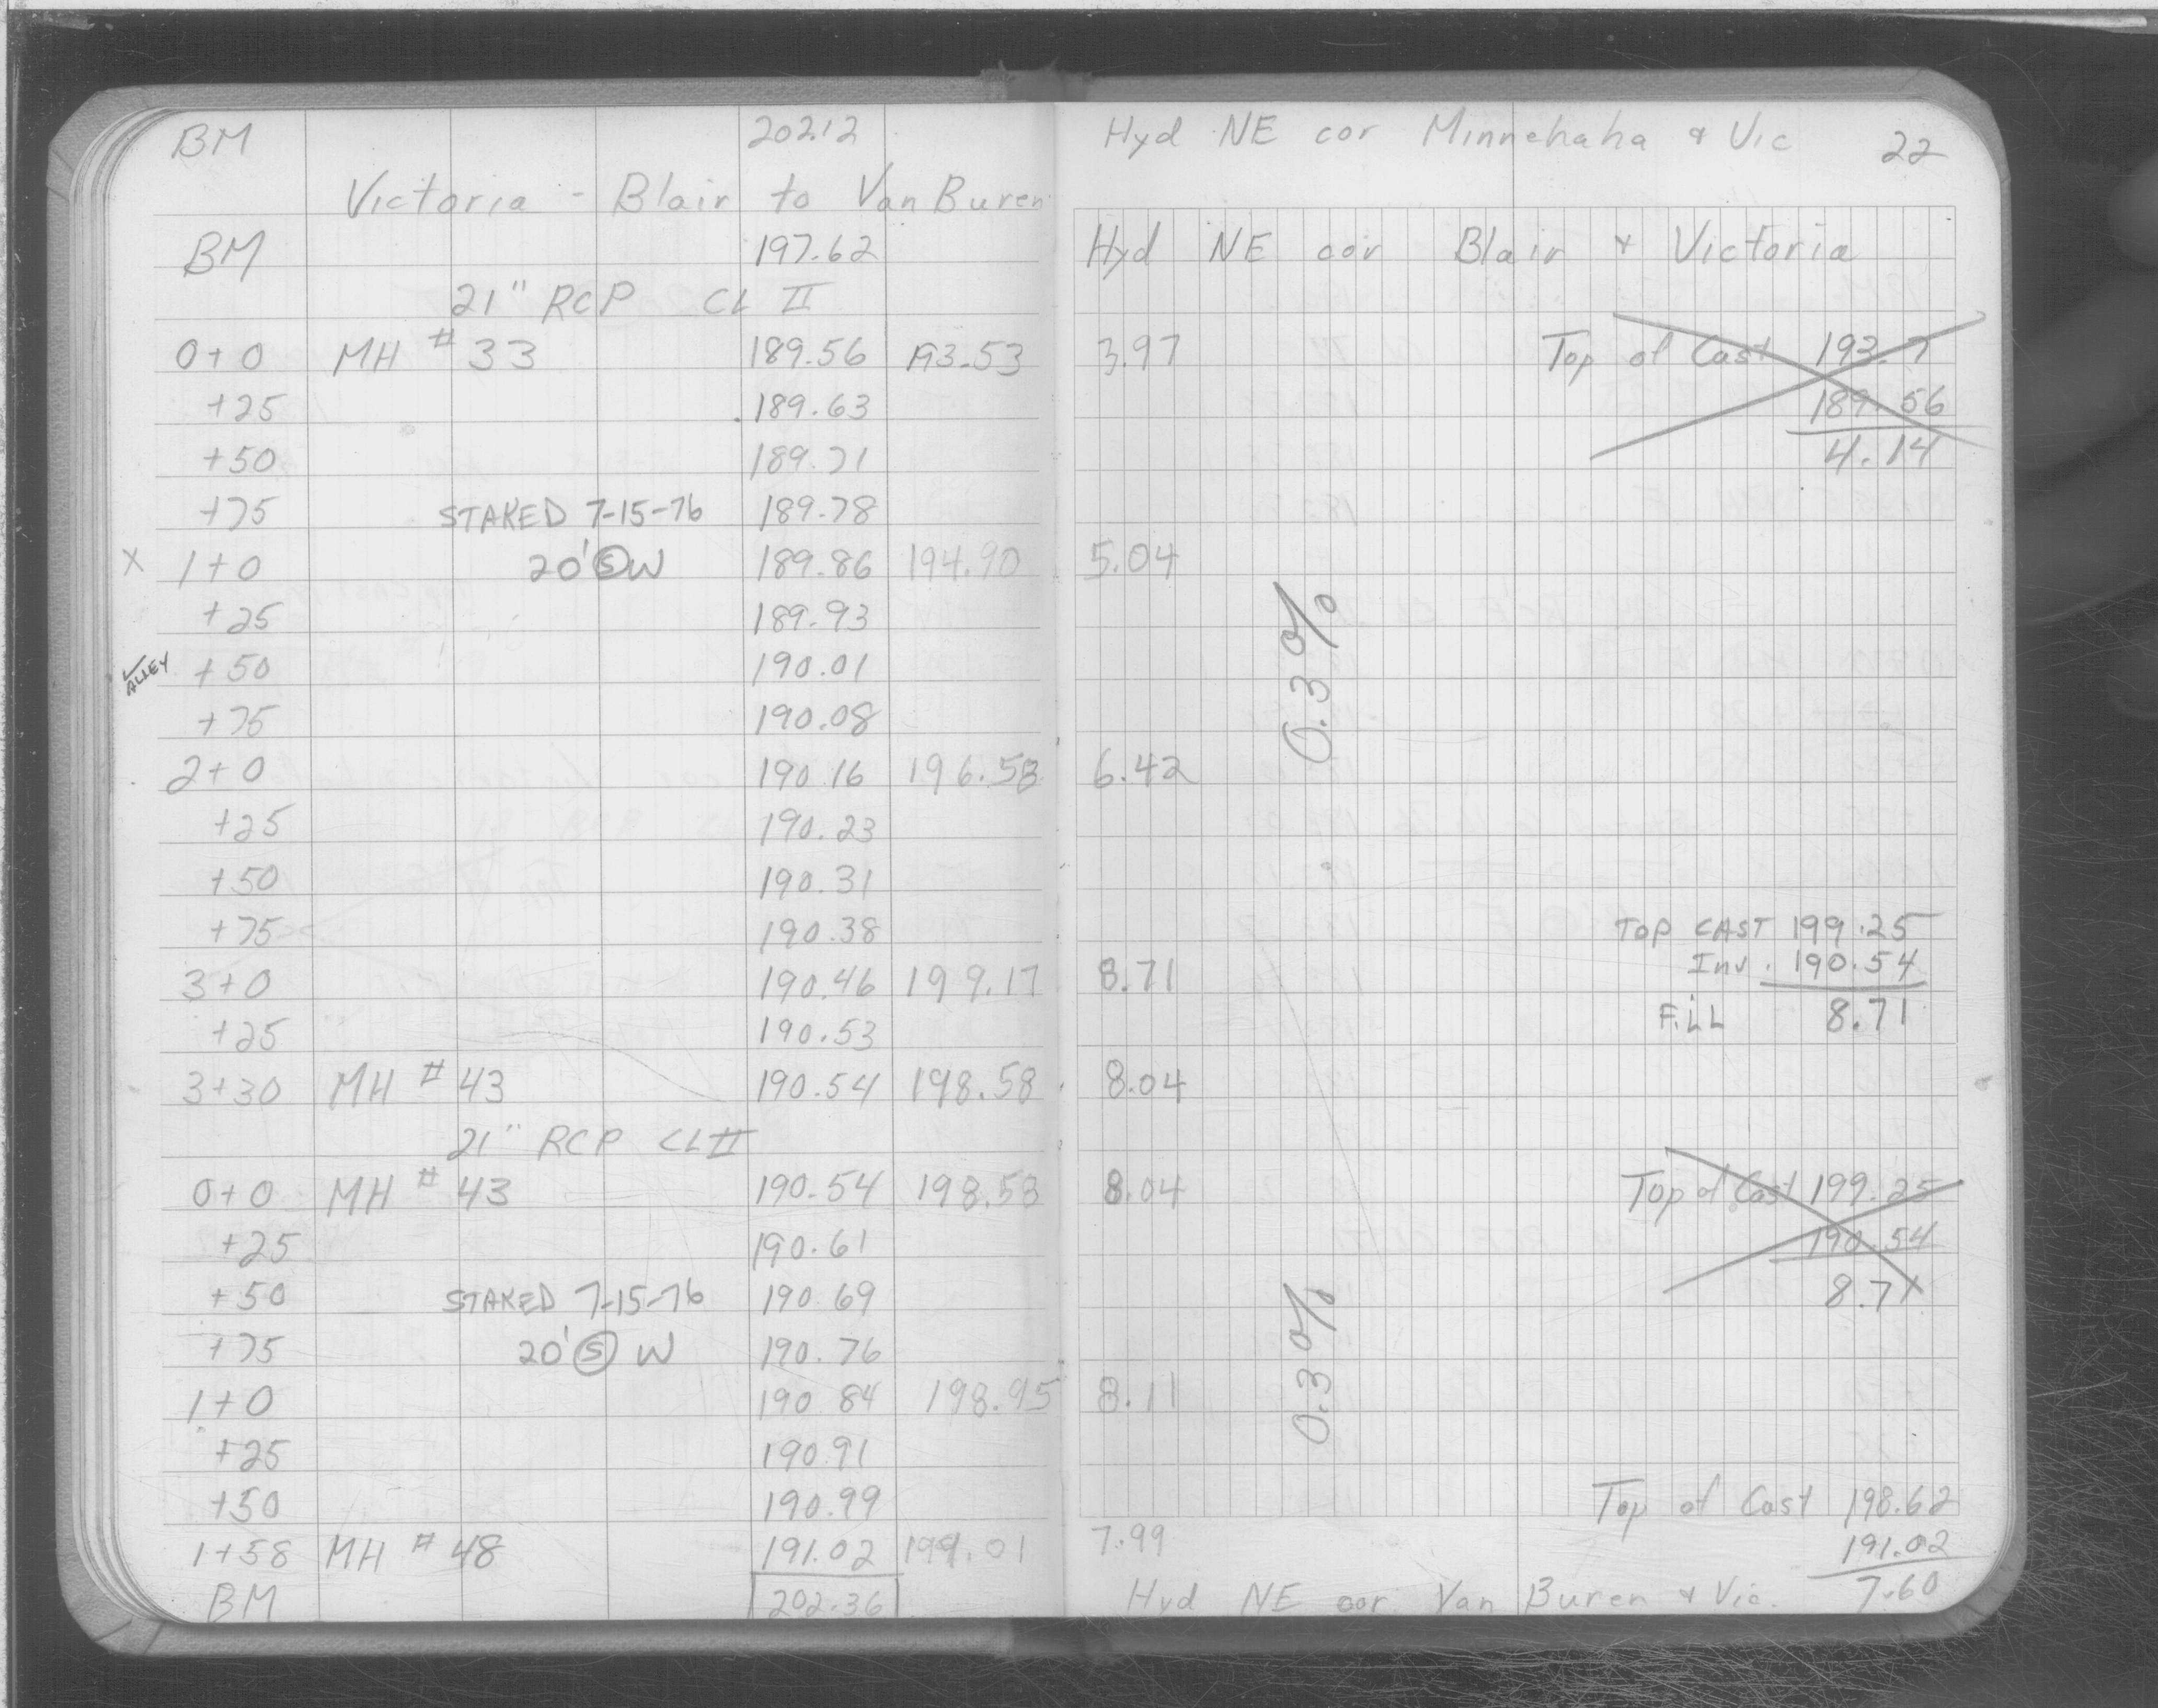 BM 202.12 Hyd NE cor Minnehaha & Vic 22
Victoria - Blair to Van Buren
BM 197.62 Hyd NE cor Blair & Victoria
21" RCP CL II
0+0 MH # 33 189.56 193.53 3.97 Top of Cast 193.7
+25 .189.63 189.56
+50 189.71 4.14
+75 STAKED 7-15-76 189.78
X 1+0 20' Ⓢ W 189.86 194.90 5.04
+25 189.93
✓ ALLEY +50 190.01 0.3%
+75 190.08
2+0 190.16 196.58 6.42
+25 190.23
+50 190.31
+75 190.38 TOP CAST 199.25
3+0 190.46 199.17 8.71 Inv. 190.54
+25 190.53 FiLL 8.71
3+30 MH # 43 190.54 198.58 8.04
21" RCP CL II
0+0 MH # 43 190.54 198.58 8.04 Top of Cast 199.25
+25 190.61 190.54
+50 STAKED 7-15-76 190.69 8.71
+75 20' Ⓢ W 190.76 0.3%
1+0 190.84 198.95 8.11
+25 190.91
+50 190.99 Top of Cast 198.62
1+58 MH # 48 191.02 199.01 7.99 191.02
BM 202.36 Hyd NE cor Van Buren & Vic. 7.60